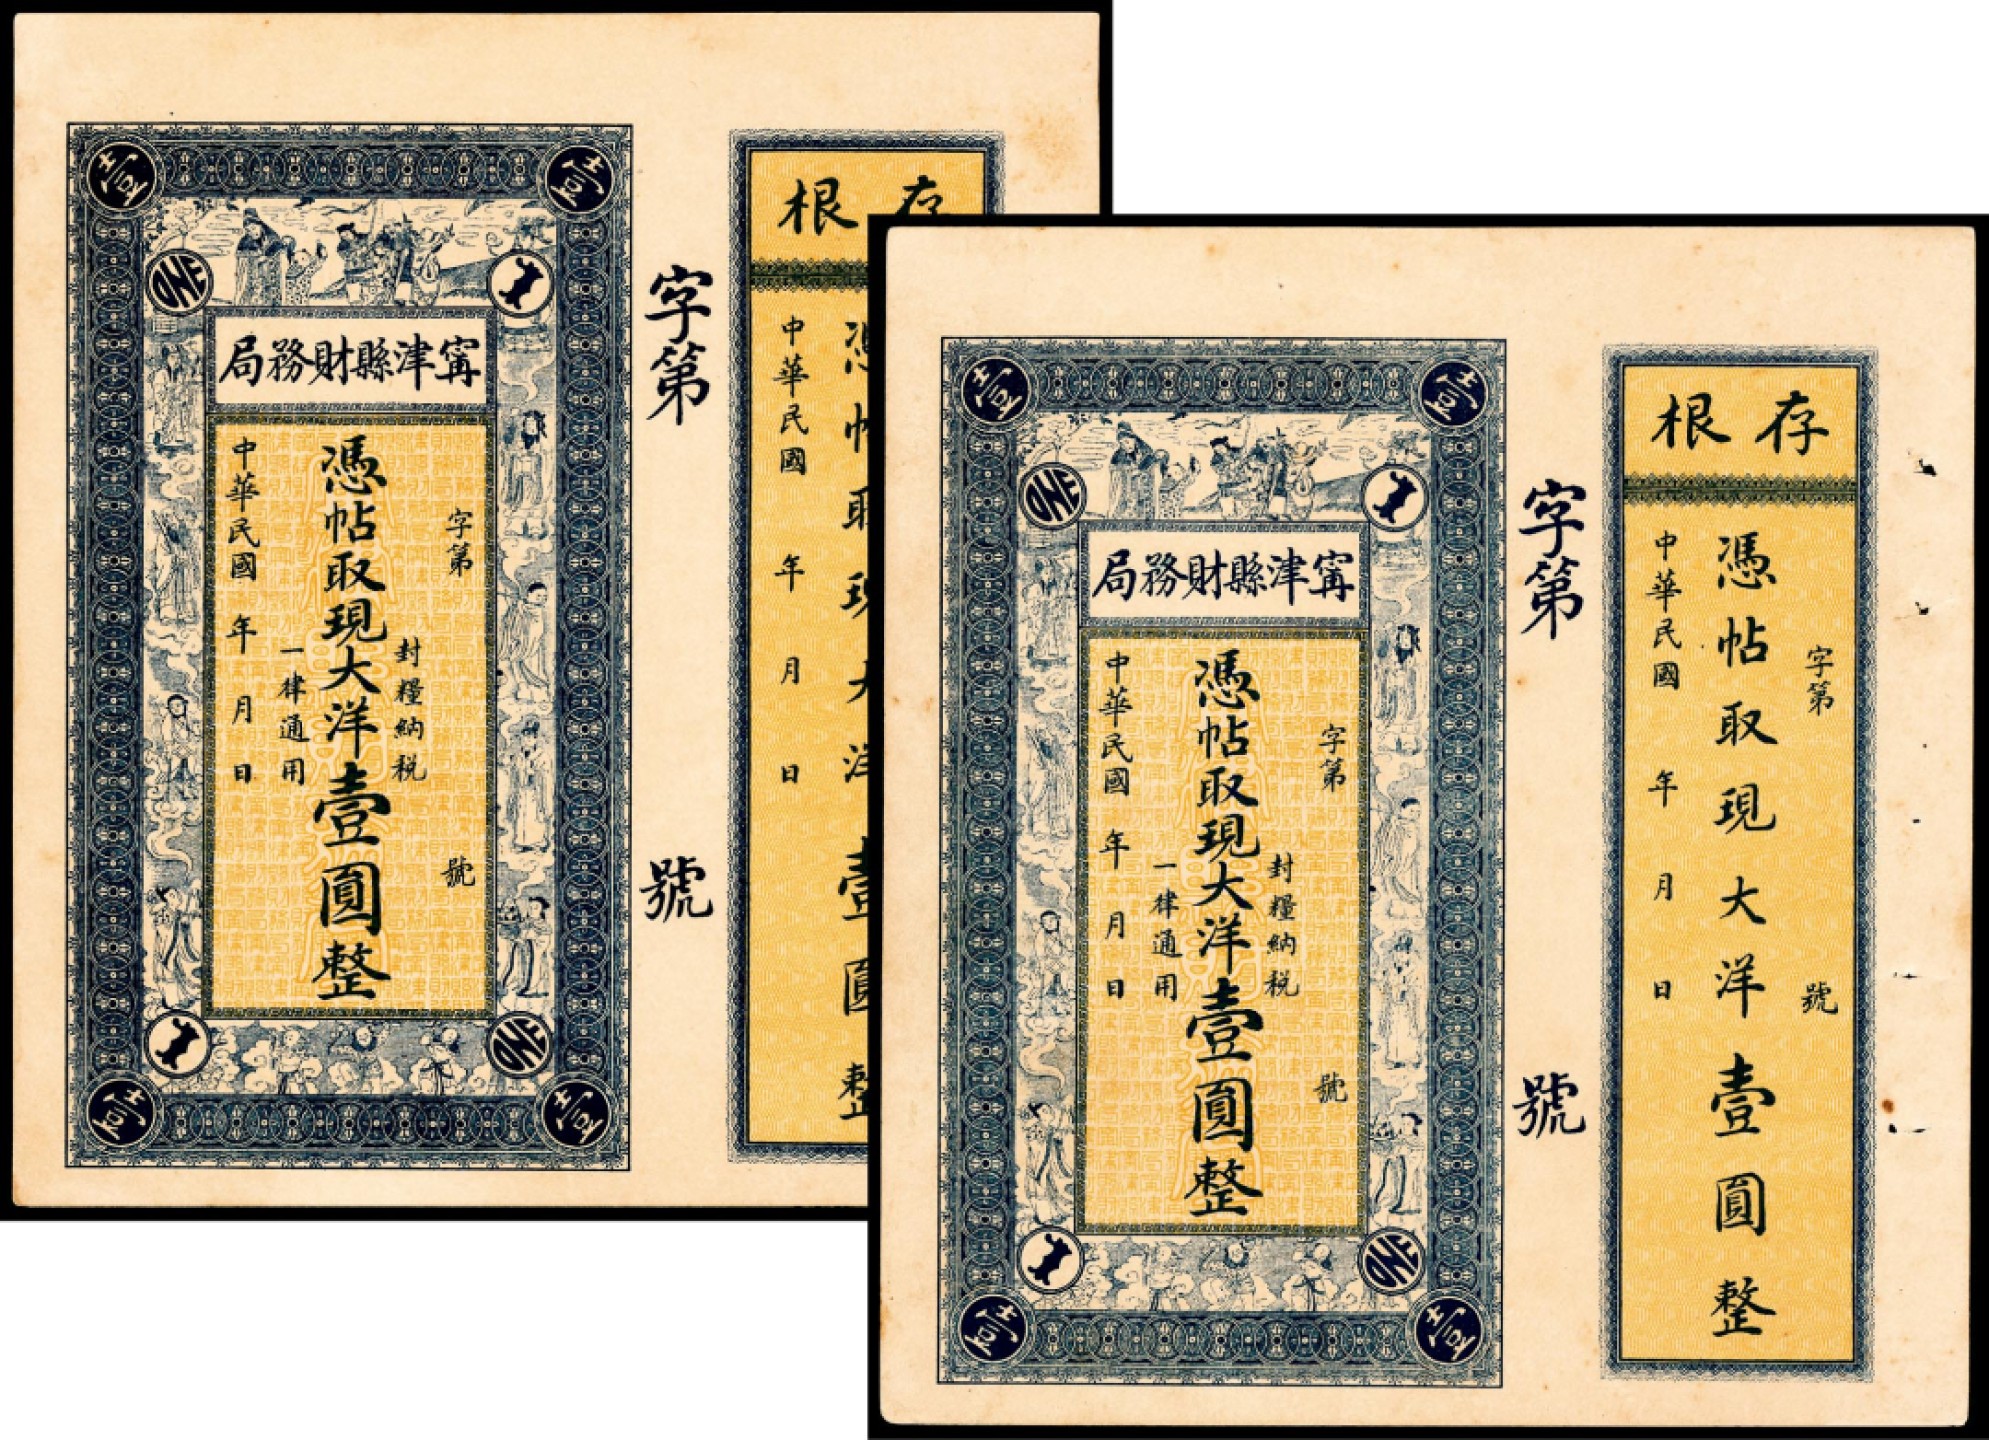 壹 壹
ONE 1
甯津縣財務局
字第 號
封糧納税
憑帖取現大洋壹圓整
一律通用
中華民國 年 月 日
1 ONE
壹 壹
字第 號
存根
憑帖取現大洋壹圓整
中華民國 年 月 日
壹 壹
ONE 1
甯津縣財務局
字第 號
封糧納税
憑帖取現大洋壹圓整
一律通用
中華民國 年 月 日
1 ONE
壹 壹
字第 號
存根
字第 號
憑帖取現大洋壹圓整
中華民國 年 月 日